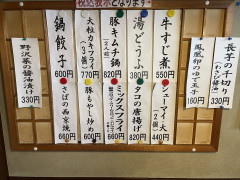 税込表示となります
長芋の千切り
(わさび醤油)
330円
鳳凰卵のゆで玉子
160円
牛すじ煮
550円
シューマイ2個
440円
湯どうふ
380円
タコの唐揚げ
820円
豚キムチ鍋
820円
ミックスフライ
660円
大粒カキフライ
770円
豚もやし炒め
600円
鍋餃子
600円
さばの西京焼
660円
野沢菜の醤油漬け
330円